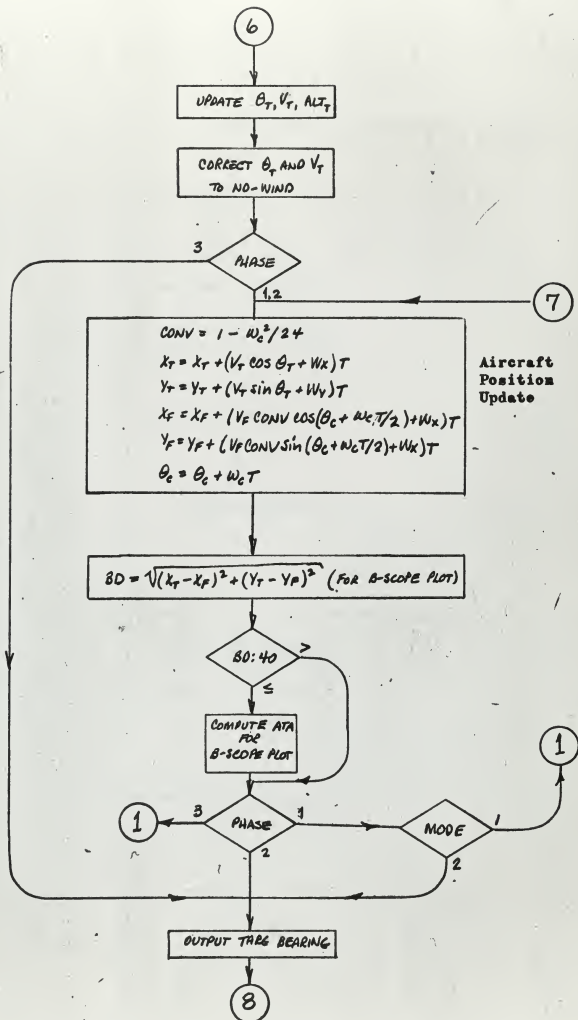 6
UPDATE θ_T, V_T, ALT_T
CORRECT θ_T AND V_T
TO NO-WIND
3
PHASE
1,2
7
CONV = 1 - ω_c²/24
X_T = X_T + (V_T COS θ_T + WX)T
Y_T = Y_T + (V_T sin θ_T + WY)T
X_F = X_F + (V_F CONV COS(θ_c + ω_c T/2) + WX)T
Y_F = Y_F + (V_F CONV sin(θ_c + ω_c T/2) + WX)T
θ_c = θ_c + ω_c T
Aircraft
Position
Update
BD = √(X_T - X_F)² + (Y_T - Y_F)² (FOR B-SCOPE PLOT)
BD:40
>
≤
COMPUTE ATA
FOR
B-SCOPE PLOT
1
1
3
PHASE
1
MODE
1
2
2
OUTPUT TARG BEARING
8